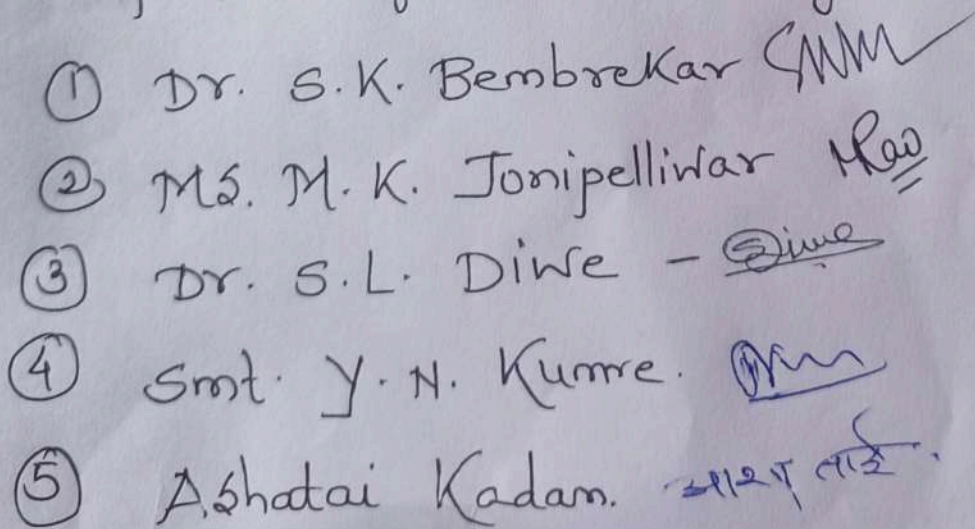 ① Dr. S.K. Bembrekar
② Ms. M.K. Jonipelliwar Rao
③ Dr. S.L. Diwe - Diwe
④ Smt. Y.N. Kumre.
⑤ Ashatai Kadam. ताई.